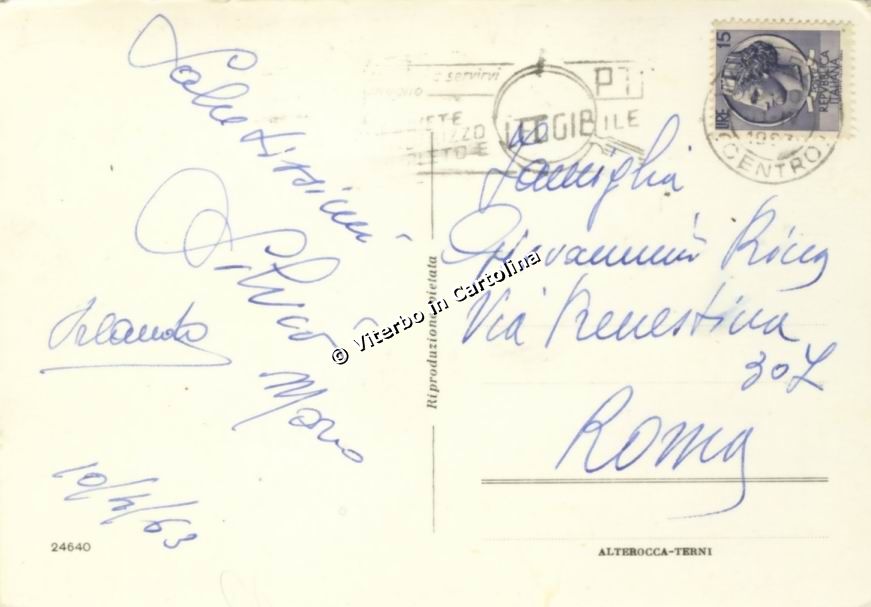 Salutissimi
Silvio
Mario
Orlando
10/4/63
24640
Riproduzione vietata
© Viterbo in Cartolina
servirvi
LEGGIBILE
PT
LIRE 15
REPVBBLICA
ITALIANA
CENTRO
Famiglia
Giovannini
Via Prenestina
307
Roma
ALTEROCCA-TERNI